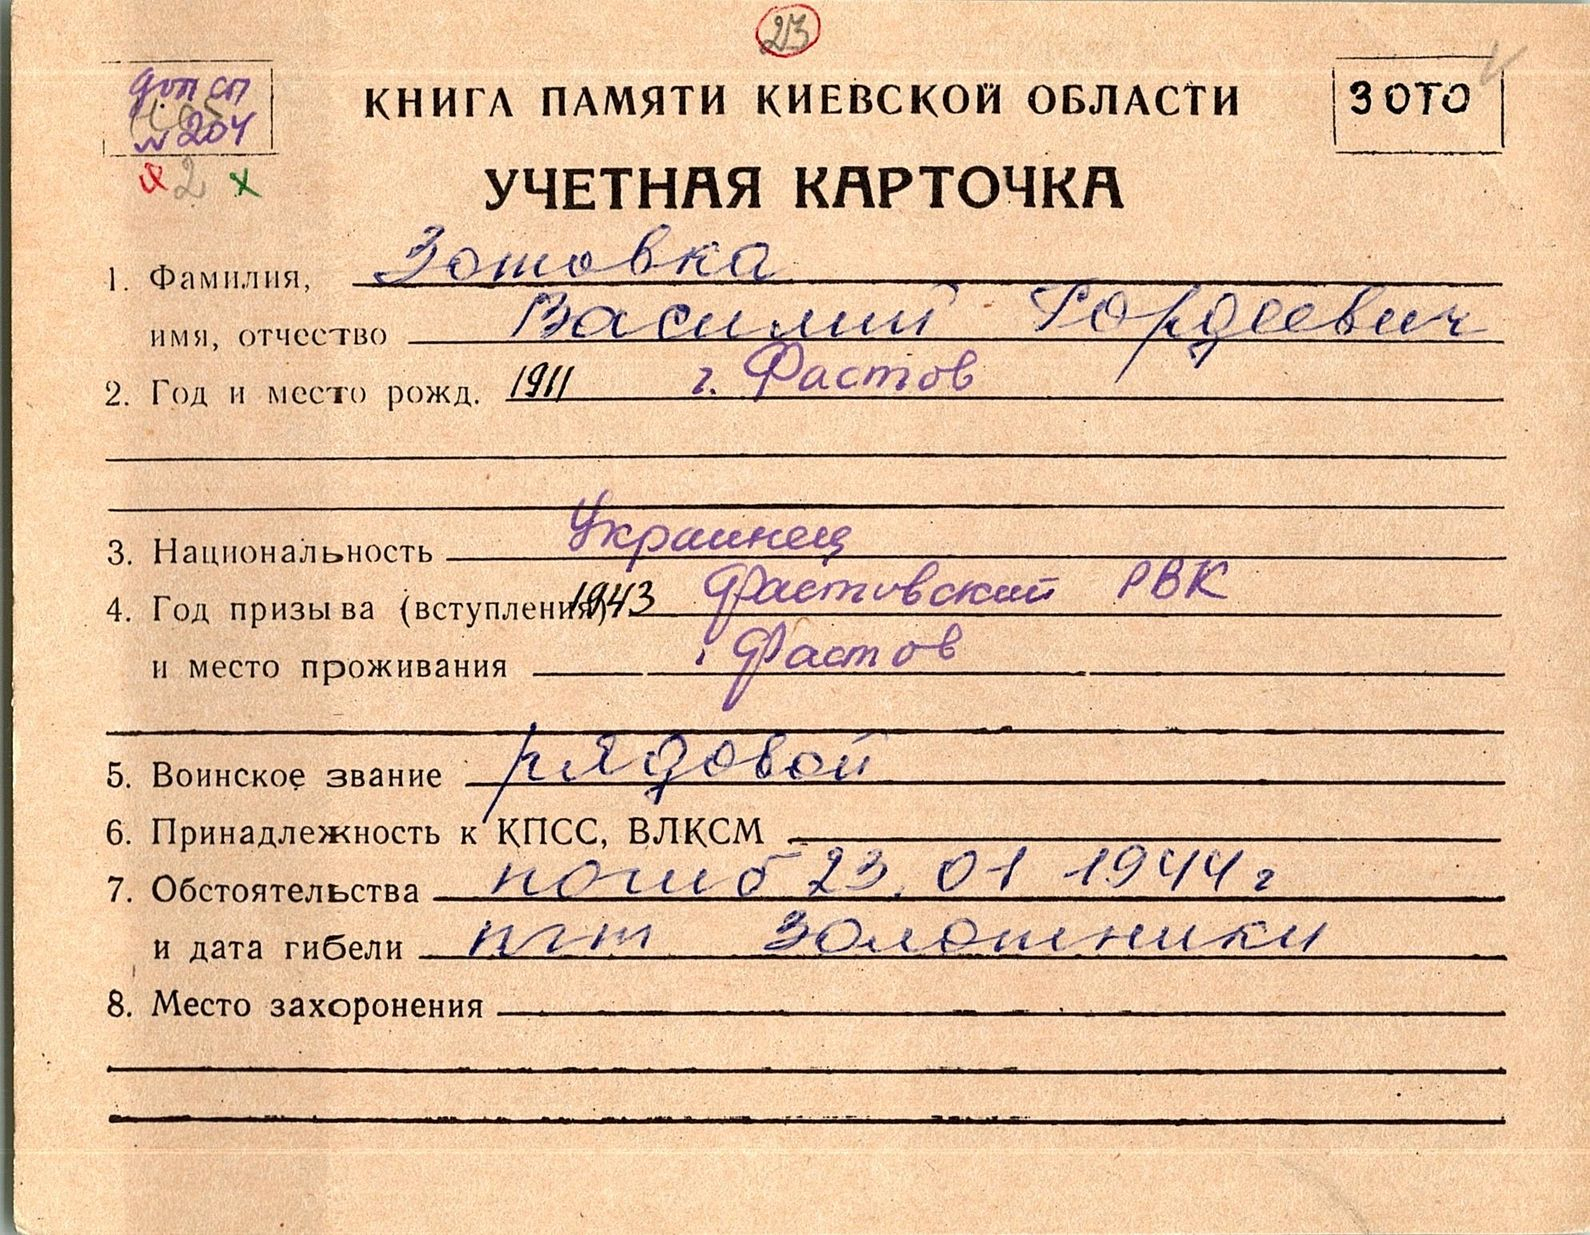 23
доп сп
КНИГА ПАМЯТИ КИЕВСКОЙ ОБЛАСТИ
ЗОТО
№ 204
2
УЧЕТНАЯ КАРТОЧКА
1. Фамилия, Зотовка
имя, отчество Василий Гордеевич
2. Год и место рожд. 1911 г. Фастов
3. Национальность Украинец
4. Год призыва (вступления) 1943 Фастовский РВК
и место проживания г. Фастов
5. Воинское звание рядовой
6. Принадлежность к КПСС, ВЛКСМ
7. Обстоятельства погиб 23.01 1944 г
и дата гибели пгт Золотники
8. Место захоронения